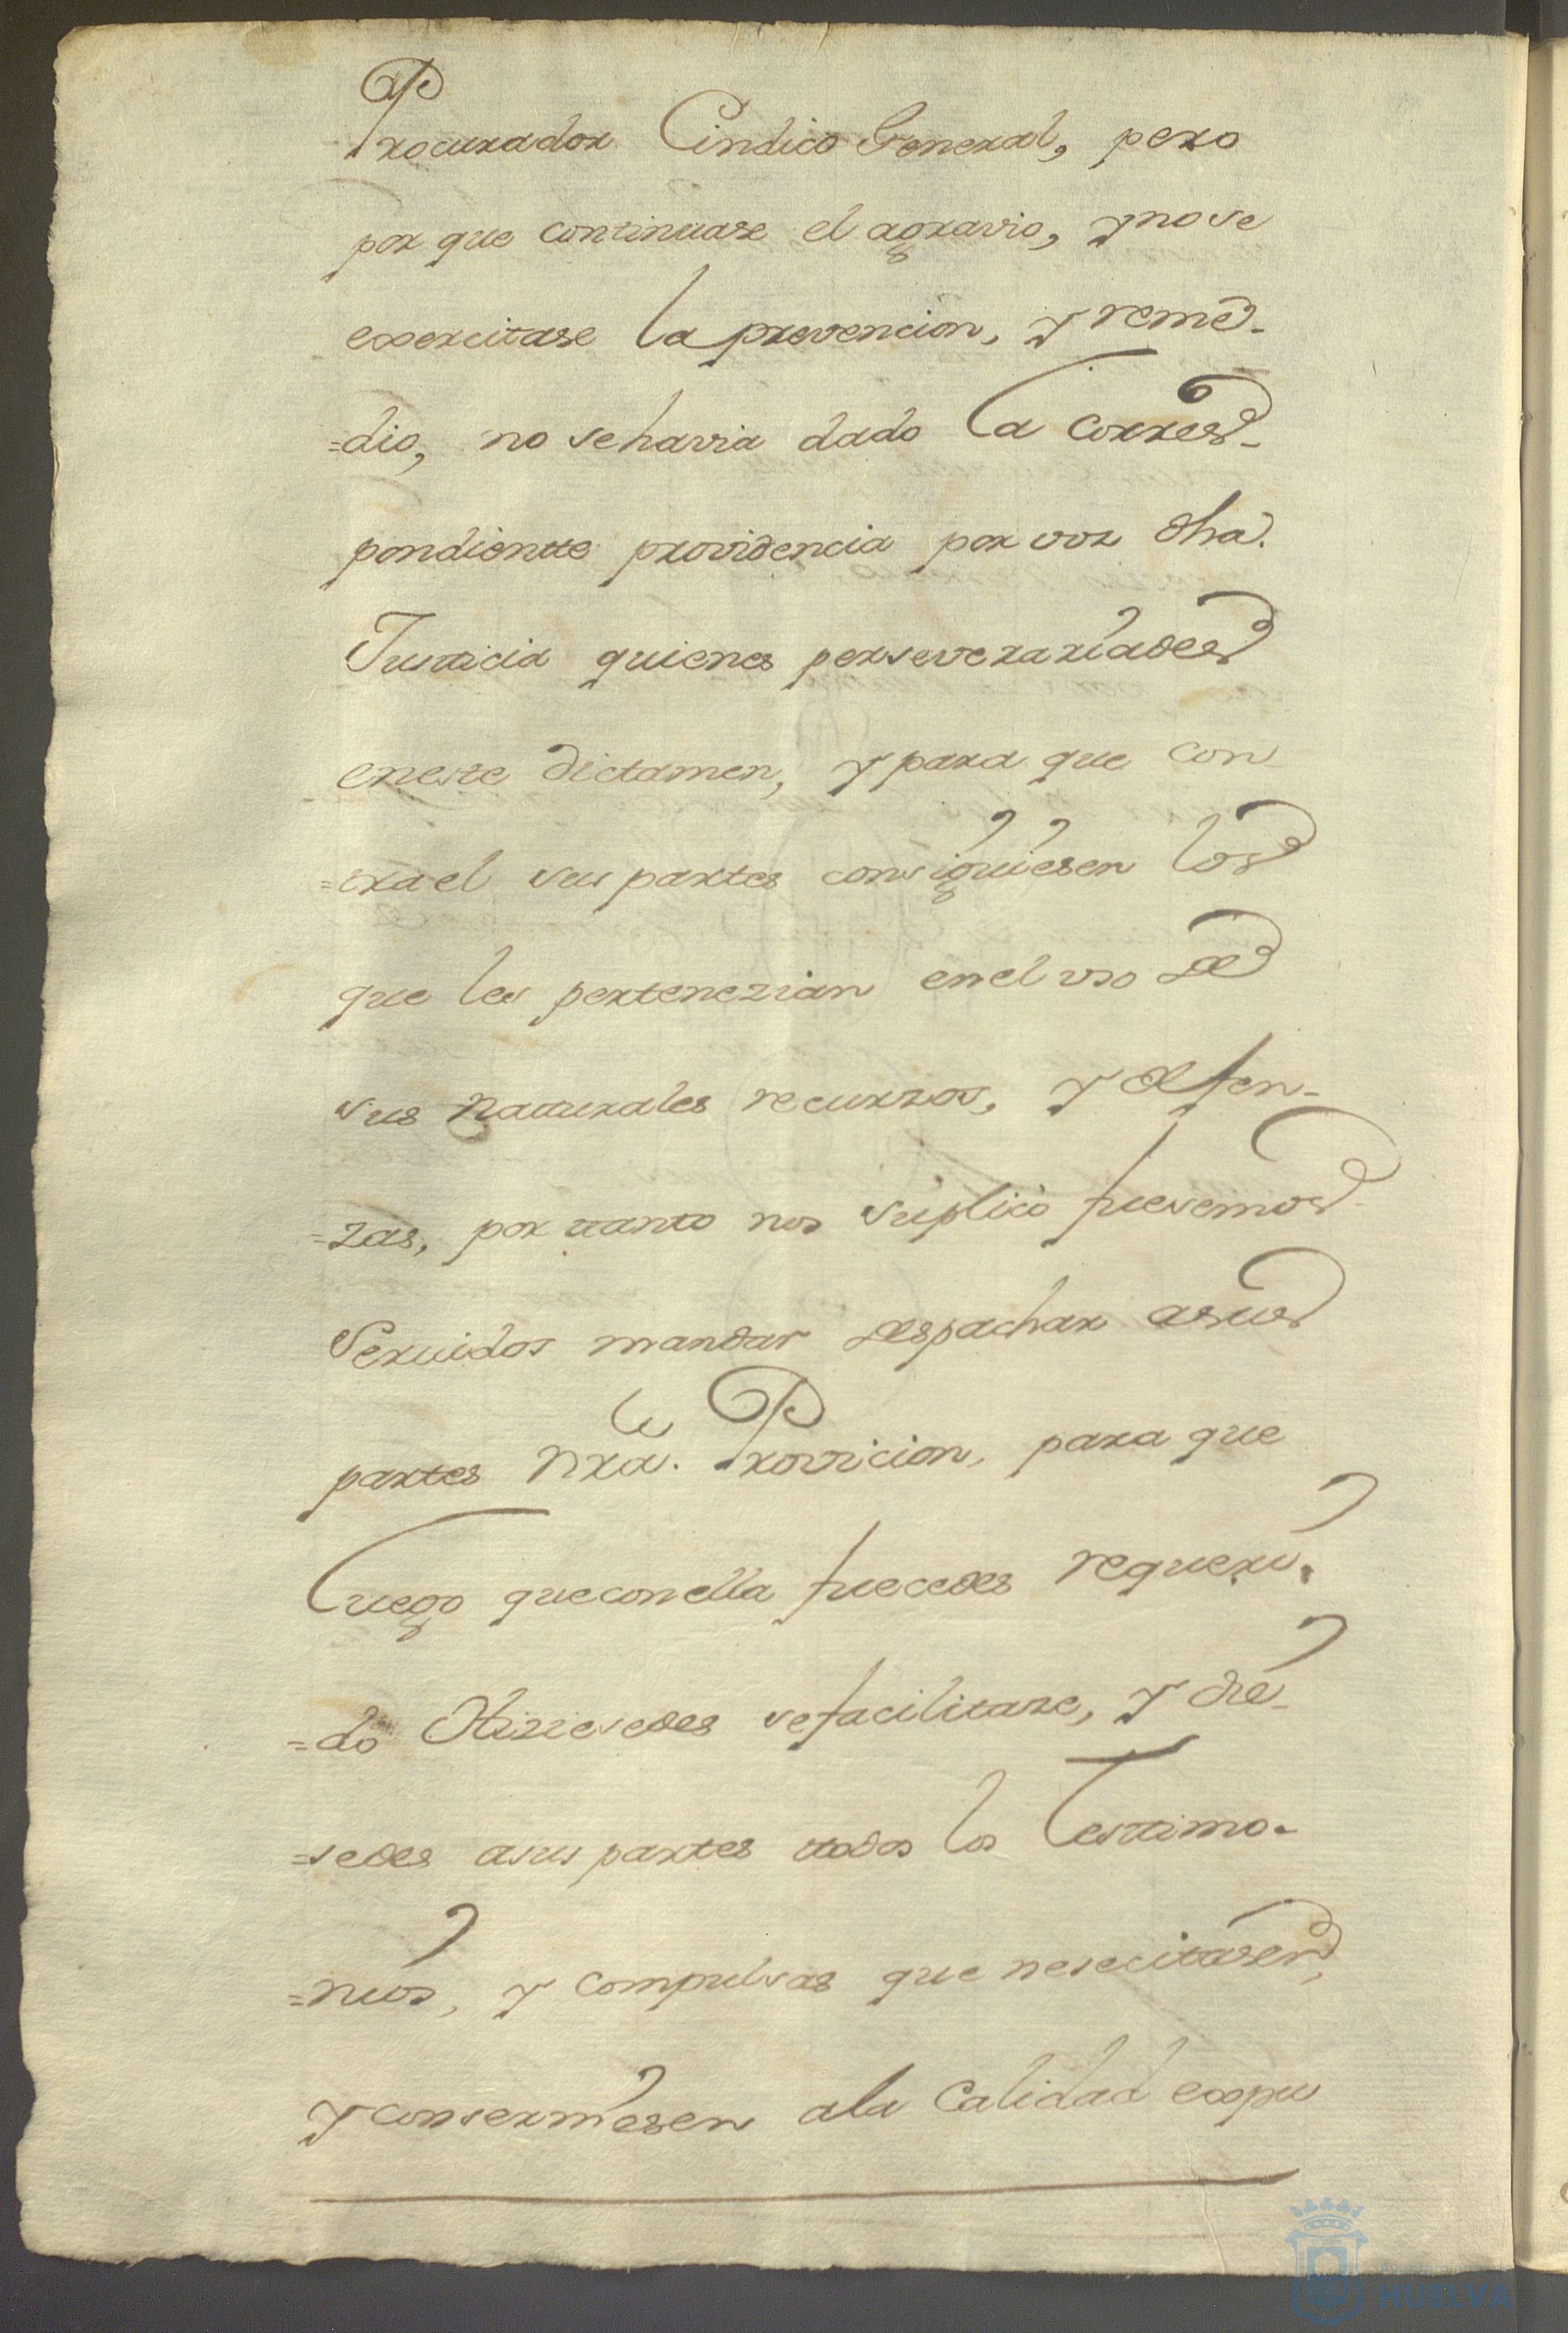 Procurador Cindico General, pero
por que continuase el agravio, y no se
exercitase la prevencion, y reme-
=dio, no se havia dado la corres-
pondientte providencia por vos dha.
Justicia quienes perseverariades
en este dictamen, y para que con
=tra el sus partes consiguiesen los
que les pertenezian en el uso de
sus naturales recurzos, y defen-
=zas, por tanto nos suplico fuesemos
Servidos mandar despachar a sus
partes nra. Provicion, para que
Luego que con ella fuecedes requeri-
=do hiziesedes se facilitase, y die-
=sedes a sus partes ttodos los Testimo-
=nios, y compulsas que nesecitasen,
y conserniesen a la Calidad expu
HUELVA